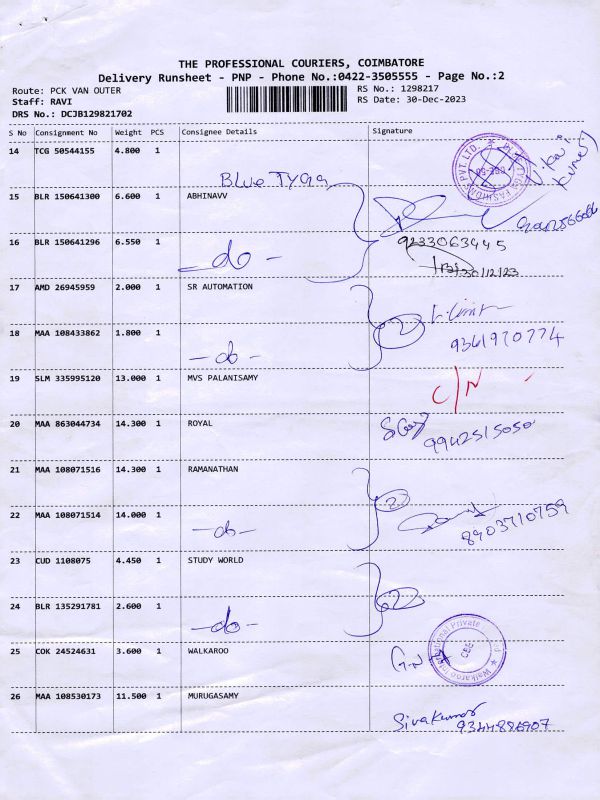 THE PROFESSIONAL COURIERS, COIMBATORE
Delivery Runsheet - PNP - Phone No.:0422-3505555 - Page No.:2
Route: PCK VAN OUTER
Staff: RAVI
DRS No.: DCJB129821702
RS No.: 1298217
RS Date: 30-Dec-2023
S No Consignment No Weight PCS Consignee Details Signature
14 TCG 50544155 4.800 1
Blue TYGA
15 BLR 150641300 6.600 1 ABHINAVV
16 BLR 150641296 6.550 1 -do- 9233063445
30/12/23
17 AMD 26945959 2.000 1 SR AUTOMATION
18 MAA 108433862 1.800 1 -do- 2 9361970774
19 SLM 335995120 13.000 1 MVS PALANISAMY C/N
20 MAA 863044734 14.300 1 ROYAL 9942515050
21 MAA 108071516 14.300 1 RAMANATHAN
22 MAA 108071514 14.000 1 -do- 2 8903710759
23 CUD 1108075 4.450 1 STUDY WORLD
24 BLR 135291781 2.600 1 -do- 2
25 COK 24524631 3.600 1 WALKAROO G.N
Walkaroo International Private
CBE
26 MAA 108530173 11.500 1 MURUGASAMY
Sivakumar
9344886907